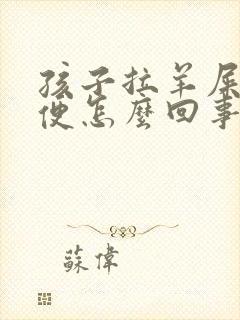 孩子拉羊屎
便怎麽回事
蘇偉